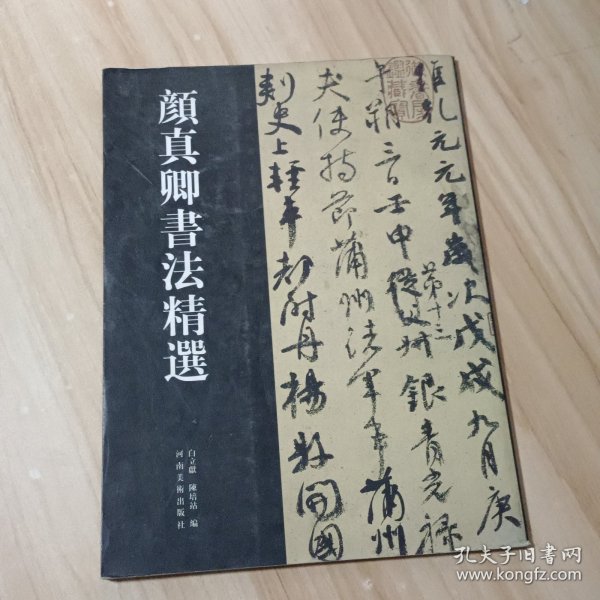 顔真卿書法精選
白立獻 陳培站 编
河南美術出版社
維乾元元年歲次戊戌九月庚
午朔三日壬申從父第十三
叔銀青光禄
夫使持節蒲州諸軍事蒲州
刺史上輕車都尉丹楊縣開國
孔夫子旧书网
www.kongfz.com